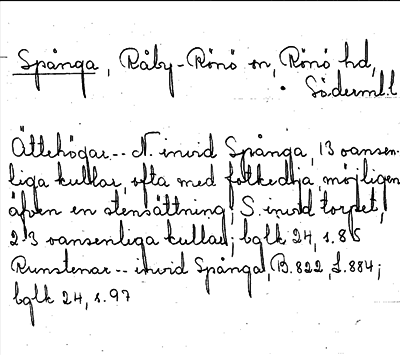 Spånga, Råby-Rönö sn, Rönö hd,
Söderml.l
Ättehögar -- N. invid Spånga, 13 oansen-
liga kullar, ofta med fotkedja, möjligen
äfven en stensättning; S. invid torpet,
23 oansenliga kullar; bglk 24, s. 86
Runstenar -- invid Spånga, B. 822, L. 884;
bglk 24, s. 97